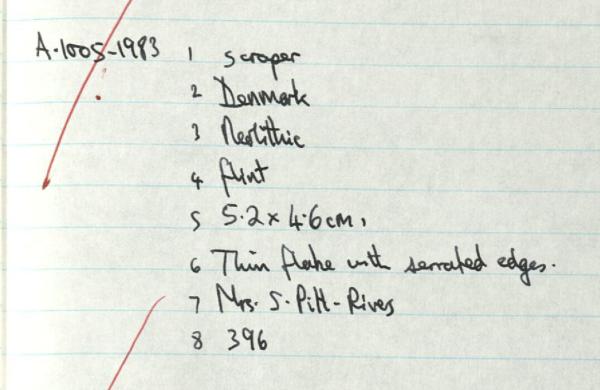 A.1005-1983 1 scraper
2 Denmark
3 Neolithic
4 flint
5 5.2 x 4.6cm.
6 Thin flake with serrated edges.
7 Mrs. S. Pitt-Rivers
8 396